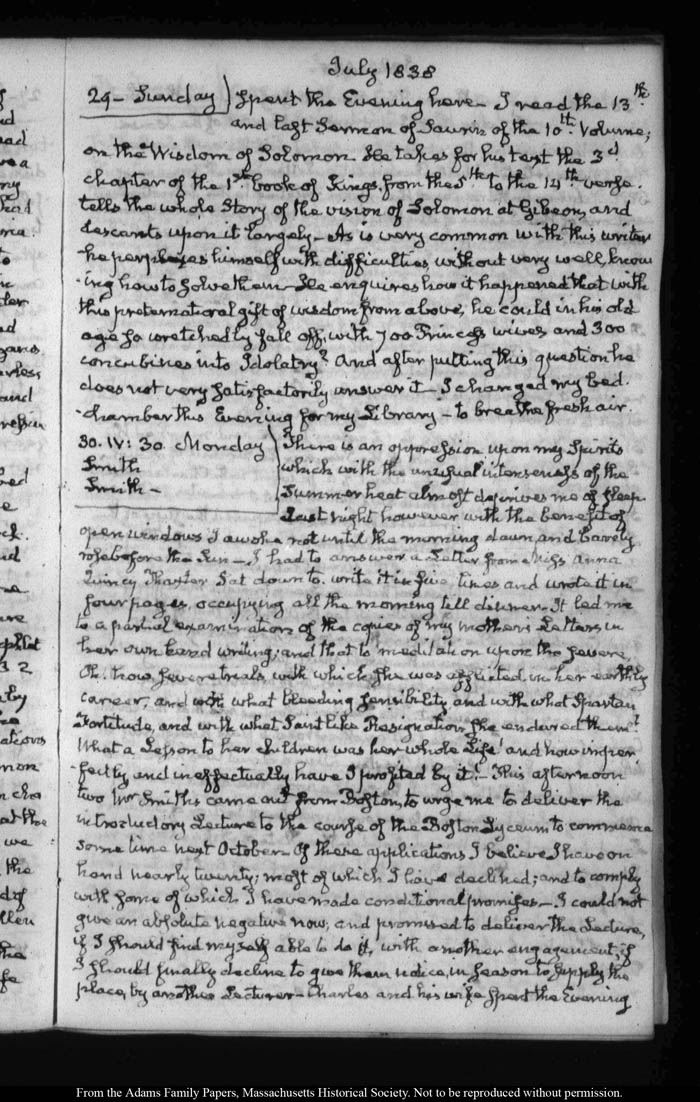 July 1838
29 - Sunday) Spent the Evening here - I read the 13th
and last Sermon of Saurin of the 10th Volume;
on the Wisdom of Solomon. He takes for his text the 3d
chapter of the 1st book of Kings, from the 5th to the 14th verse.
tells the whole Story of the vision of Solomon at Gibeon, and
descants upon it largely - As is very common with this writer
he perplexes himself with difficulties without very well know
-ing how to solve them - He enquires how it happened that with
this preternatural gift of wisdom from above, he could in his old
age so wretchedly fall off, with 700 Princess wives and 300
concubines into Idolatry? And after putting this question he
does not very satisfactorily answer it - I changed my bed.
-chamber this Evening for my Library - to breathe fresh air.
30. IV: 30. Monday) There is an oppression upon my Spirits
Smith which with the unusual intenseness of the
Smith - Summer heat almost deprives me of sleep
Last night however with the benefit of
open windows I awoke not until the morning dawn, and barely
rose before the Sun - I had to answer a Letter from Miss Anna
Quincy Thaxter Sat down to write it in five lines and wrote it in
four pages, occupying all the morning till dinner - It led me
to a partial examination of the copies of my mother's Letters, in
her own hand writing; and that to meditation upon the severe
Oh! how severe trials, with which she was afflicted in her earthly
career, and with what bleeding sensibility, and with what Spartan
Fortitude, and with what Saintlike Resignation she endured them!
What a Lesson to her children was her whole Life! and how imper
-fectly and ineffectually have I profited by it! - This afternoon
two Mr Smiths came out from Boston, to urge me to deliver the
introductory Lecture to the course of the Boston Lyceum to commence
some time next October - Of these applications I believe I have on
hand nearly twenty; most of which I have declined; and to comply
with some of which I have made conditional promises - I could not
give an absolute negative now, and promised to deliver the Lecture,
if I should find myself able to do it, with another engagement, if
I should finally decline to give them notice, in season to supply the
place, by another Lecturer - Charles and his wife spent the Evening
From the Adams Family Papers, Massachusetts Historical Society. Not to be reproduced without permission.